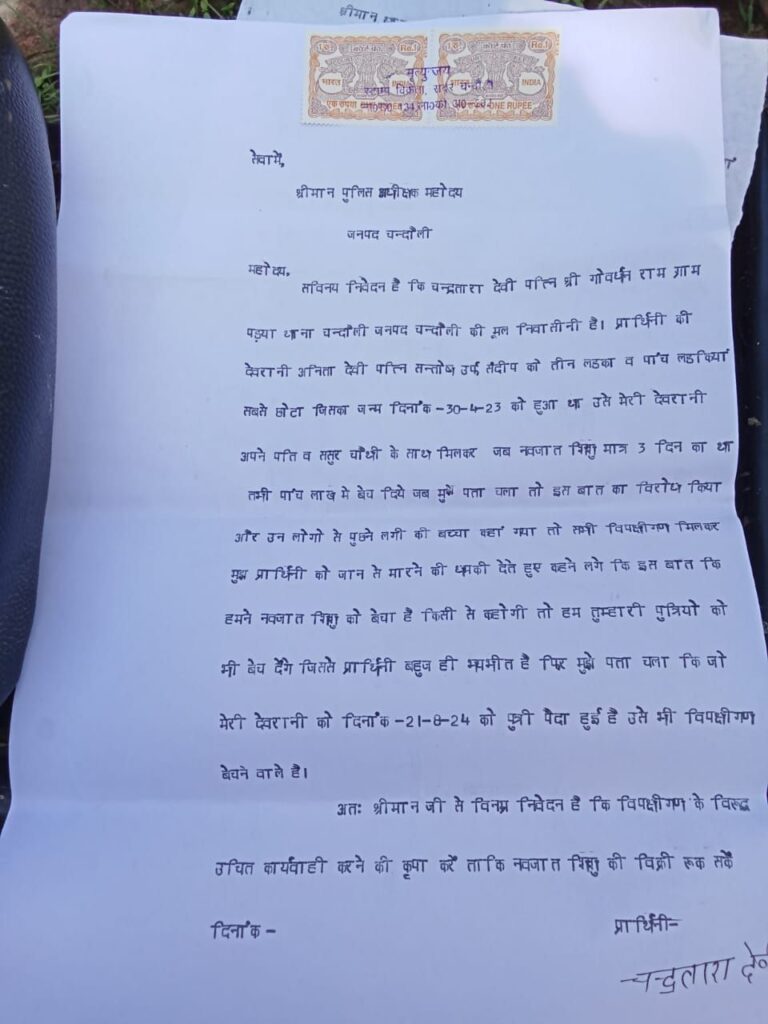 श्रीमान
1रु. कोर्ट फी Re.1 1रु. कोर्ट फी Re.1
भारत भारत INDIA
एक रुपया ONE RUPEE
मृत्युन्जय
स्टाम्प विक्रेता, सदर चन्दौली
सेवामें,
श्रीमान पुलिस अधीक्षक महोदय
जनपद चन्दौली
महोदय,
सविनय निवेदन है कि चन्द्रतारा देवी पत्नि श्री गोवर्धन राम ग्राम
पड़या थाना चन्दौली जनपद चन्दौली की मूल निवासीनी है। प्रार्थिनी की
देवरानी अनिता देवी पत्नि सन्तोष उर्फ संदीप को तीन लडका व पांच लडकियां
सबसे छोटा जिसका जन्म दिनांक -30-4-23 को हुआ था उसे मेरी देवरानी
अपने पति व ससुर चौथी के साथ मिलकर जब नवजात शिशु मात्र 3 दिन का था
तभी पांच लाख मे बेच दिये जब मुझे पता चला तो इस बात का विरोध किया
और उन लोगो से पुछने लगी की बच्चा कहां गया तो सभी विपक्षीगण मिलकर
मुझ प्रार्थिनी को जान से मारने की धमकी देते हुए कहने लगे कि इस बात कि
हमने नवजात शिशु को बेचा है किसी से कहोगी तो हम तुम्हारी पुत्रियो को
भी बेच देंगे जिससे प्रार्थिनी बहुज ही भयभीत है फिर मुझे पता चला कि जो
मेरी देवरानी को दिनांक -21-8-24 को पुत्री पैदा हुई है उसे भी विपक्षीगण
बेचने वाले है।
अतः श्रीमान जी से विनम्र निवेदन है कि विपक्षीगण के विरूद्ध
उचित कार्यवाही करने की कृपा करें ताकि नवजात शिशु की विक्री रूक सकें
दिनांक - प्रार्थिनी-
चन्द्रतारा देवी